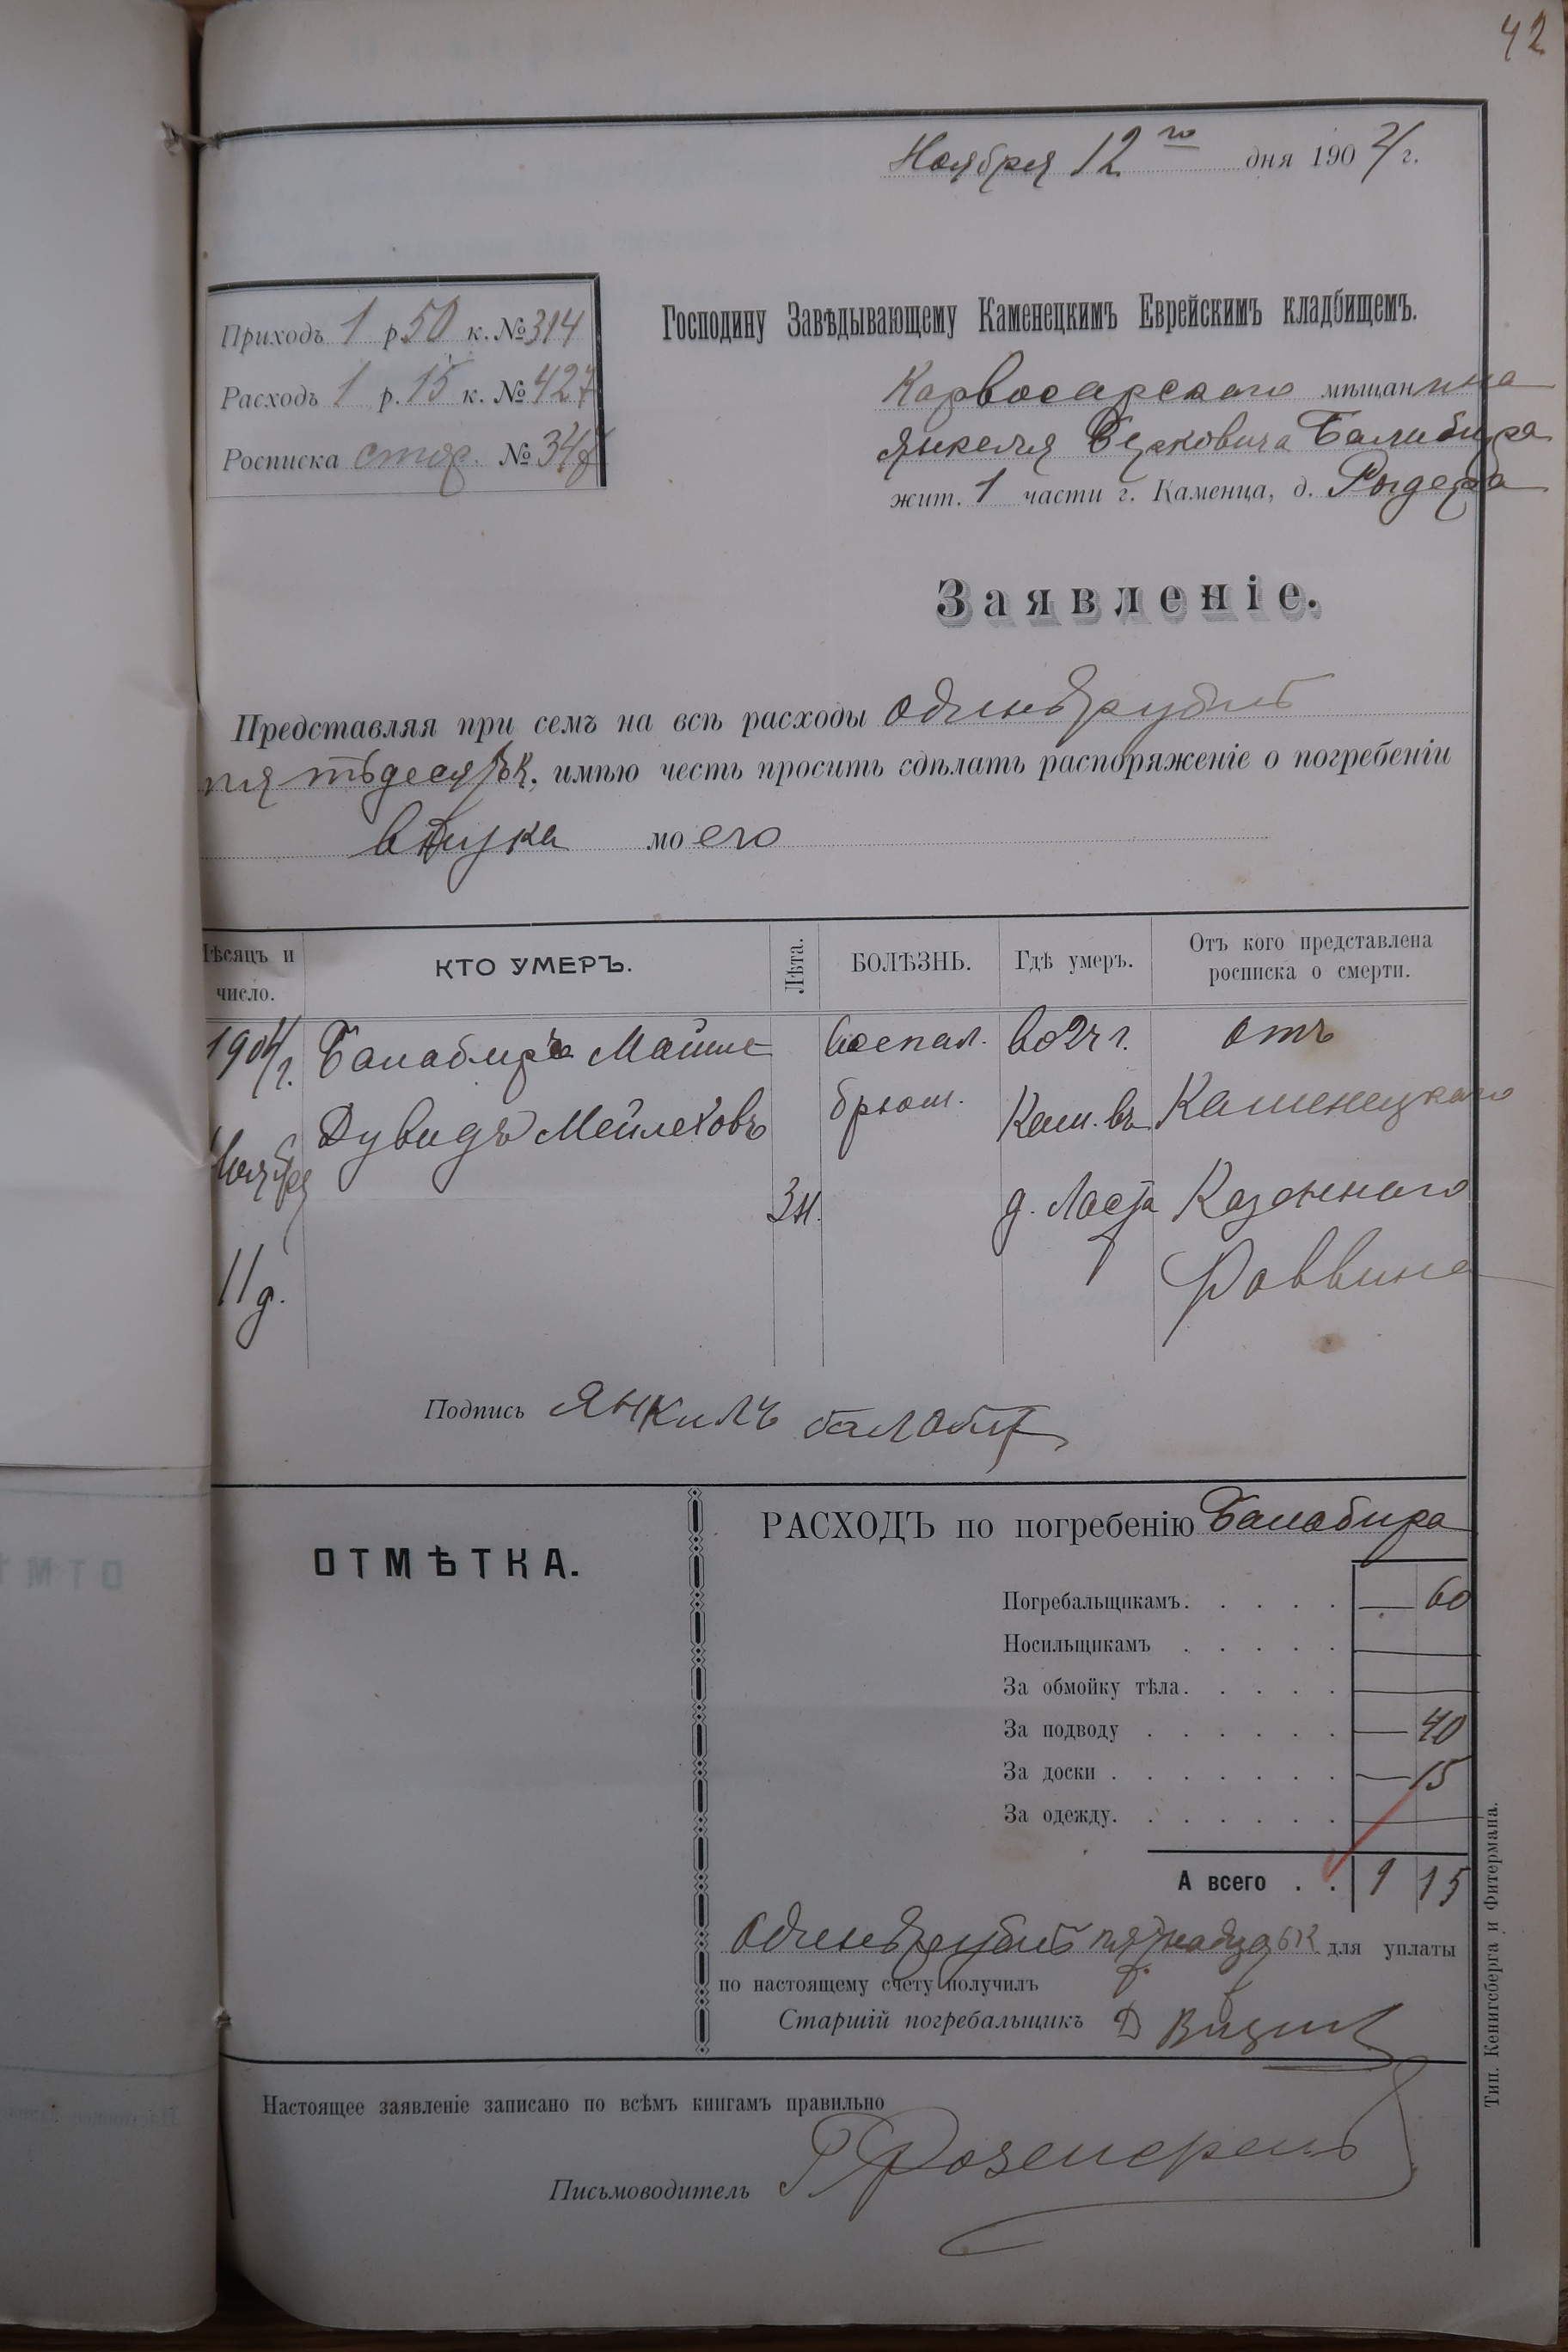 42
Ноября 12го дня 1904 г.
Приходъ 1 р. 50 к. № 314
Расходъ 1 р. 15 к. № 427
Росписка стор. №
Господину Завѣдывающему Каменецкимъ Еврейскимъ кладбищемъ.
Карвосарскаго мѣщанина
Янкеля Берковича Балабира
жит. 1 части г. Каменца, д.
Заявленіе.
Представляя при семъ на всѣ расходы одинъ рубль
пятьдесятъ к., имѣю честь просить сдѣлать распоряженіе о погребеніи
внука моего
Мѣсяцъ и число.
КТО УМЕРЪ.
Лѣта.
БОЛѢЗНЬ.
Гдѣ умеръ.
Отъ кого представлена росписка о смерти.
1904 г. Балабиръ воспал. во 2 ч г. отъ
Ноября Дувидъ Мейлеховъ брюш. Кам. въ Каменецкаго
3 м. д. Казеннаго
11 д. Раввина
Подпись Янкиль
ОТМѢТКА.
РАСХОДЪ по погребенію Балабира
Погребальщикамъ. . . . . — 60
Носильщикамъ . . . . . —
За обмойку тѣла. . . . . —
За подводу . . . . . . — 40
За доски . . . . . . . — 15
За одежду. . . . . . . —
А всего . . 1 15
Одинъ рубль пятнадцать к для уплаты
по настоящему счету получилъ
Старшій погребальщикъ Д
Настоящее заявленіе записано по всѣмъ книгамъ правильно
Письмоводитель
Тип. Кенигсберга и Фитермана.